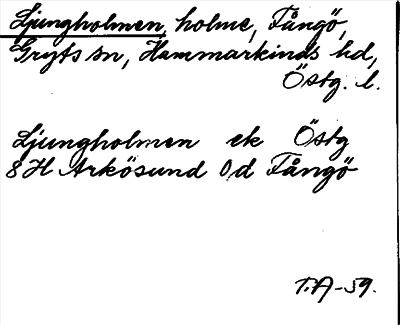 Ljungholmen, holme, Fångö,
Gryts sn, Hammarkinds hd,
Östg. l.
Ljungholmen ek Östg
8H Arkösund 0d Fångö
T.A-59.